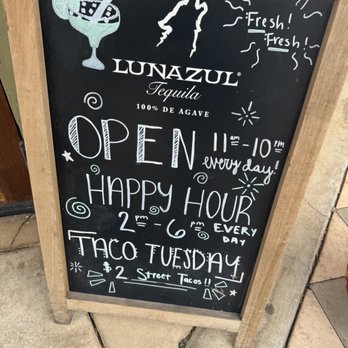 Fresh!
Fresh!
LUNAZUL®
Tequila
100% DE AGAVE
OPEN 11am-10pm
every day!
HAPPY HOUR
2pm-6pm EVERY DAY
TACO TUESDAY
$2 Street Tacos!!